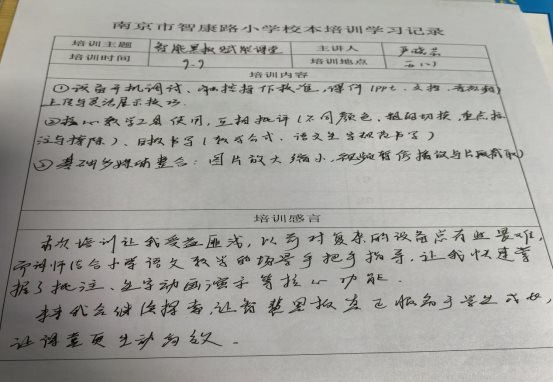 南京市智康路小学校本培训学习记录
培训主题 智慧黑板赋能课堂 主讲人
培训时间 9.9 培训地点
培训内容
①设备开机调试、触控操作校准,课件(PPT、文档、音视频)
上传与灵活展示技巧.
②核心教学工具使用,互动批评(不同颜色、粗细切换,重点批
注与擦除)、白板书写(数学公式、语文生字规范书写)
③基础多媒体整合:图片放大缩小,视频暂停播放与片段截取)
培训感言
本次培训让我受益匪浅,以前对复杂的设备总有些畏难,
而讲师结合小学语文教学的场景手把手指导,让我快速掌
握了批注、生字动画演示等核心功能.
未来我会继续探索,让智慧黑板真正服务于学生成长,
让课堂更生动高效.